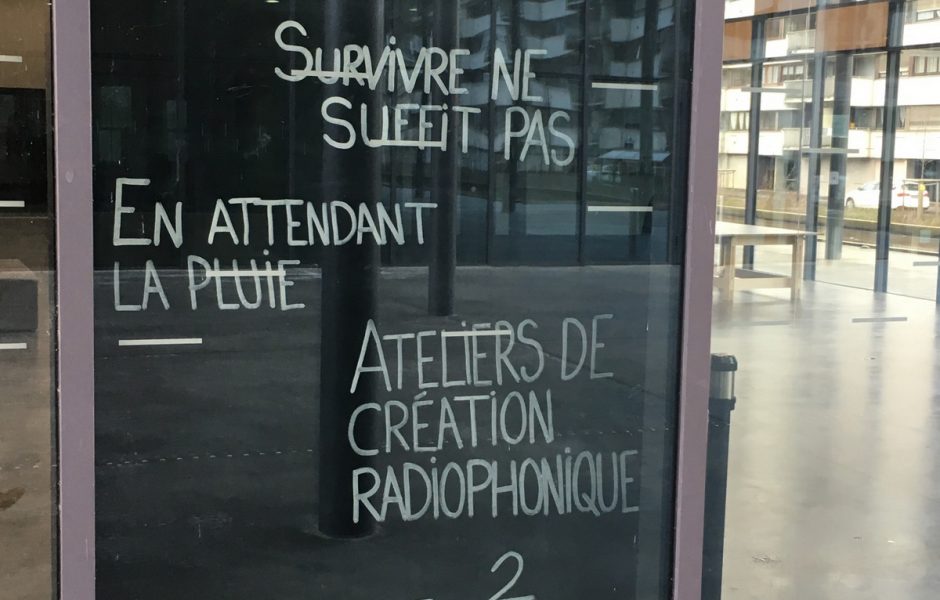 SURVIVRE NE
SUFFiT PAS
EN ATTENDANT
LA PLUiE
ATELIERS DE
CRÉATiON
RADiOPHONiQUE
2